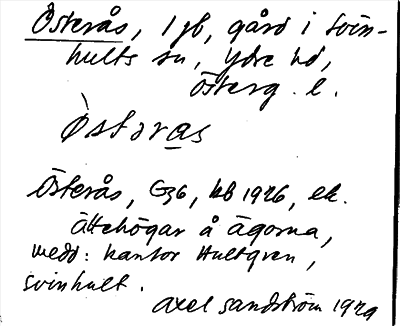 Österås, 1 gb, gård i Svin-
hults sn, Ydre hd,
Österg. l.
Òstəras
Österås, G36, kb 1926, ek.
ättehögar å ägorna,
medd: kantor Hultgren,
Svinhult.
Axel Sandström 1929